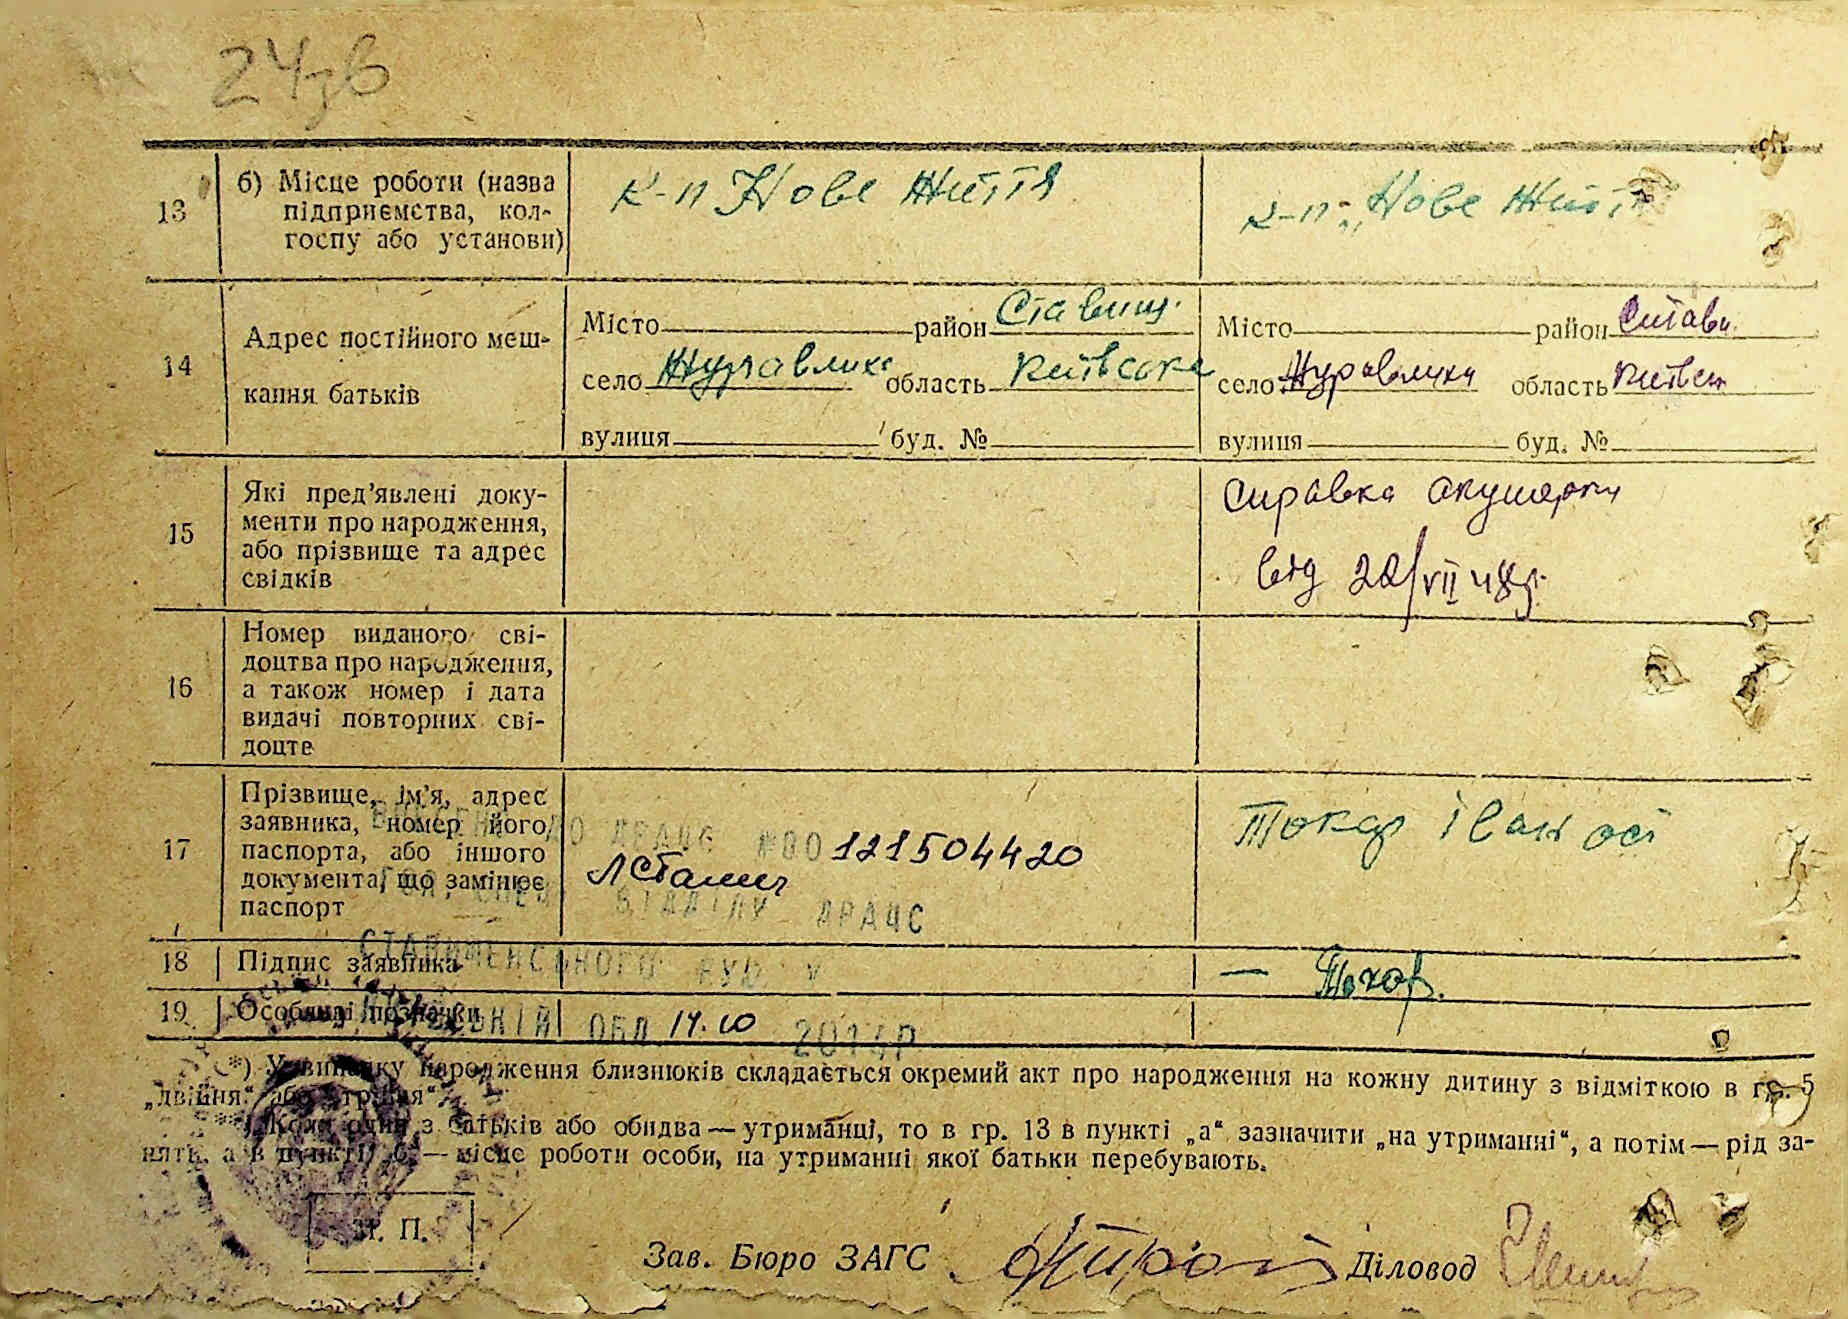 24зв
13 б) Місце роботи (назва підприємства, кол-госпу або установи)
к-п Нове Життя
к-п „Нове Життя
14 Адрес постійного меш-
кання батьків
Місто район Ставищ.
село Журавлиха область Київська
вулиця буд. №
Місто район Стави.
село Журавлиха область Київськ
вулиця буд. №
15 Які пред’явлені доку-
менти про народження,
або прізвище та адрес
свідків
Справка акушерки
від 20/VII 48р.
16 Номер виданого сві-
доцтва про народження,
а також номер і дата
видачі повторних сві-
доцтв
17 Прізвище, ім’я, адрес
заявника, номер його
паспорта, або іншого
документа, що замінює
паспорт
ДО ДРАЦС №00121504420
ВІДДІЛУ ДРАЦС
Токар Іван
18 Підпис заявника
— Токар.
19 Особливі позначки
ОБЛ 14.10 2014Р
*) У випадку народження близнюків складається окремий акт про народження на кожну дитину з відміткою в гр. 5
„двійня“ або „трійня“.
**) Коли один з батьків або обидва — утриманці, то в гр. 13 в пункті „а“ зазначити „на утриманні“, а потім — рід за-
нять, а в пункті „б“ — місце роботи особи, на утриманні якої батьки перебувають.
М. П.
Зав. Бюро ЗАГС Діловод